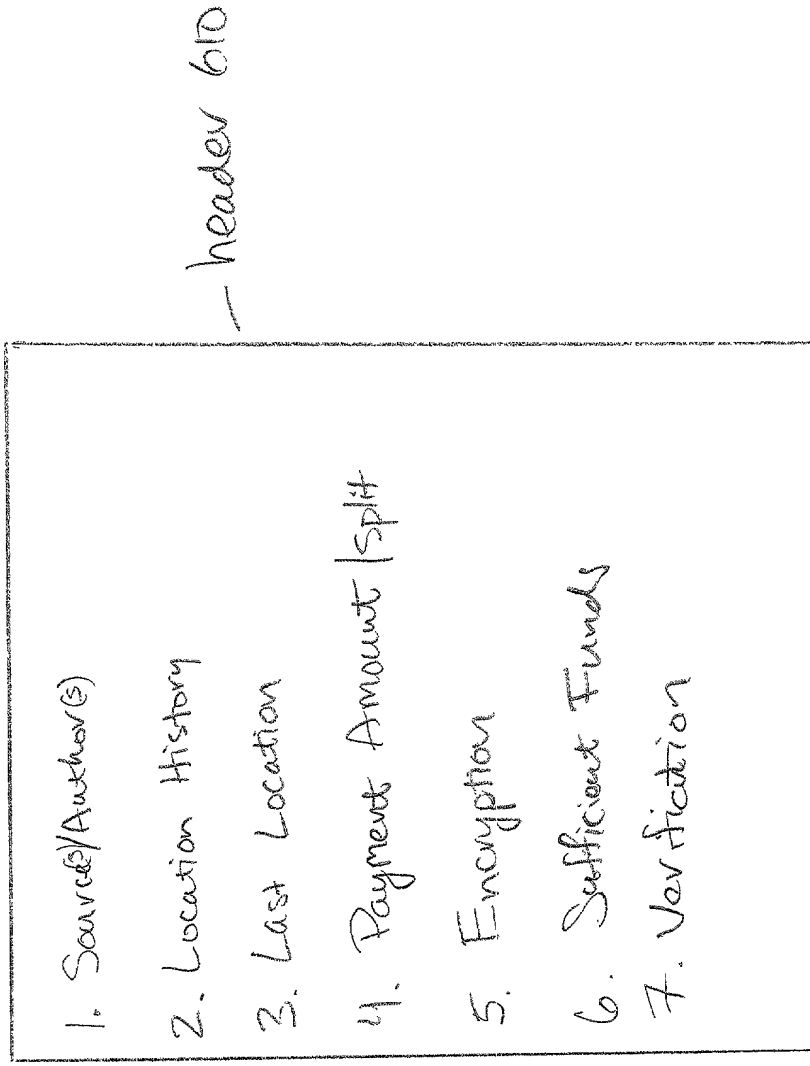 header 610
1. Source(s)/Author(s)
2. Location History
3. Last Location
4. Payment Amount/Split
5. Encryption
6. Sufficient Funds
7. Verification